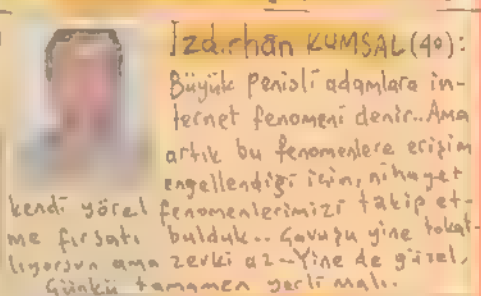 Izdırhan KUMSAL (40):
Büyük penisli adamlara in-
ternet fenomeni denir.. Ama
artık bu fenomenlere erişim
engellendiği için, nihayet
kendi yörel fenomenlerimizi takip et-
me fırsatı bulduk.. Gavuru yine tokat-
lıyorsun ama zevki az.. Yine de güzel,
Çünkü tamamen yerli malı.